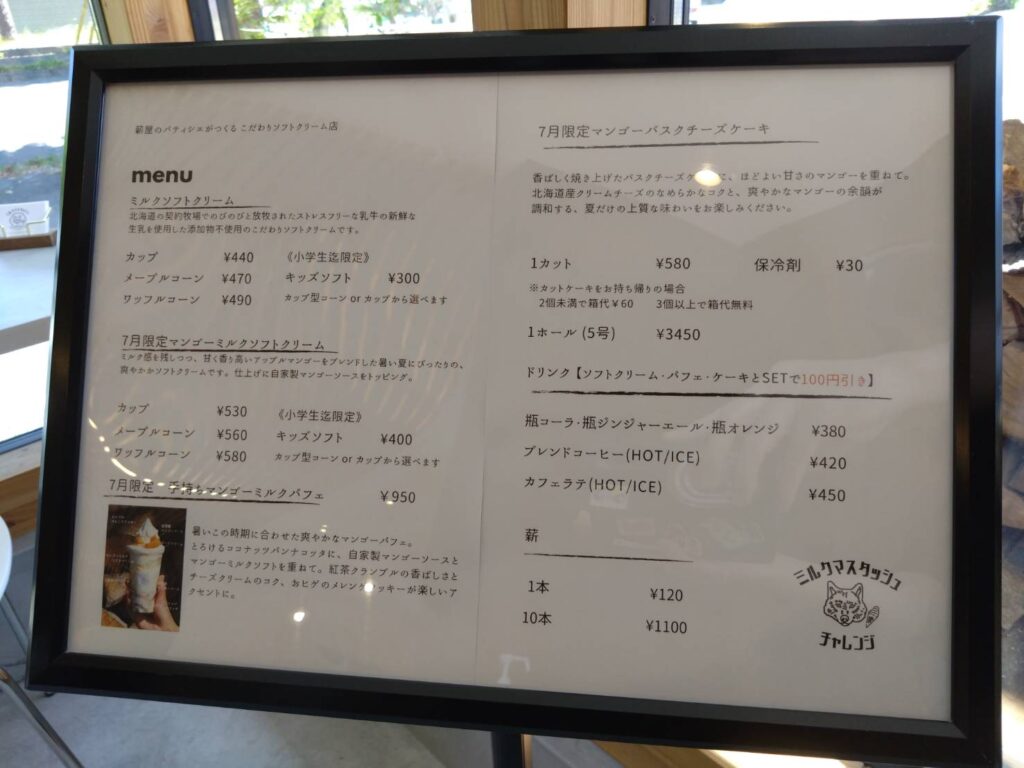 薪屋のパティシエがつくる こだわりソフトクリーム店
menu
ミルクソフトクリーム
北海道の契約牧場でのびのびと放牧されたストレスフリーな乳牛の新鮮な
生乳を使用した添加物不使用のこだわりソフトクリームです。
カップ ¥440 《小学生迄限定》
メープルコーン ¥470 キッズソフト ¥300
ワッフルコーン ¥490 カップ型コーン or カップから選べます
7月限定マンゴーミルクソフトクリーム
ミルク感を残しつつ、甘く香り高いアップルマンゴーをブレンドした暑い夏にぴったりの、
爽やかソフトクリームです。仕上げに自家製マンゴーソースをトッピング。
カップ ¥530 《小学生迄限定》
メープルコーン ¥560 キッズソフト ¥400
ワッフルコーン ¥580 カップ型コーン or カップから選べます
7月限定 手持ちマンゴーミルクパフェ ¥950
暑いこの時期に合わせた爽やかなマンゴーパフェ。
とろけるココナッツパンナコッタに、自家製マンゴーソースと
マンゴーミルクソフトを重ねて。紅茶クランブルの香ばしさと
チーズクリームのコク、おヒゲのメレンゲクッキーが楽しいア
クセントに。
7月限定マンゴーバスクチーズケーキ
香ばしく焼き上げたバスクチーズケーキに、ほどよい甘さのマンゴーを重ねて。
北海道産クリームチーズのなめらかなコクと、爽やかなマンゴーの余韻が
調和する、夏だけの上質な味わいをお楽しみください。
1カット ¥580 保冷剤 ¥30
※カットケーキをお持ち帰りの場合
2個未満で箱代¥60 3個以上で箱代無料
1ホール (5号) ¥3450
ドリンク【ソフトクリーム・パフェ・ケーキとSETで100円引き】
瓶コーラ・瓶ジンジャーエール・瓶オレンジ ¥380
ブレンドコーヒー(HOT/ICE) ¥420
カフェラテ(HOT/ICE) ¥450
薪
1本 ¥120
10本 ¥1100
ミルクマスタッシュ
チャレンジ